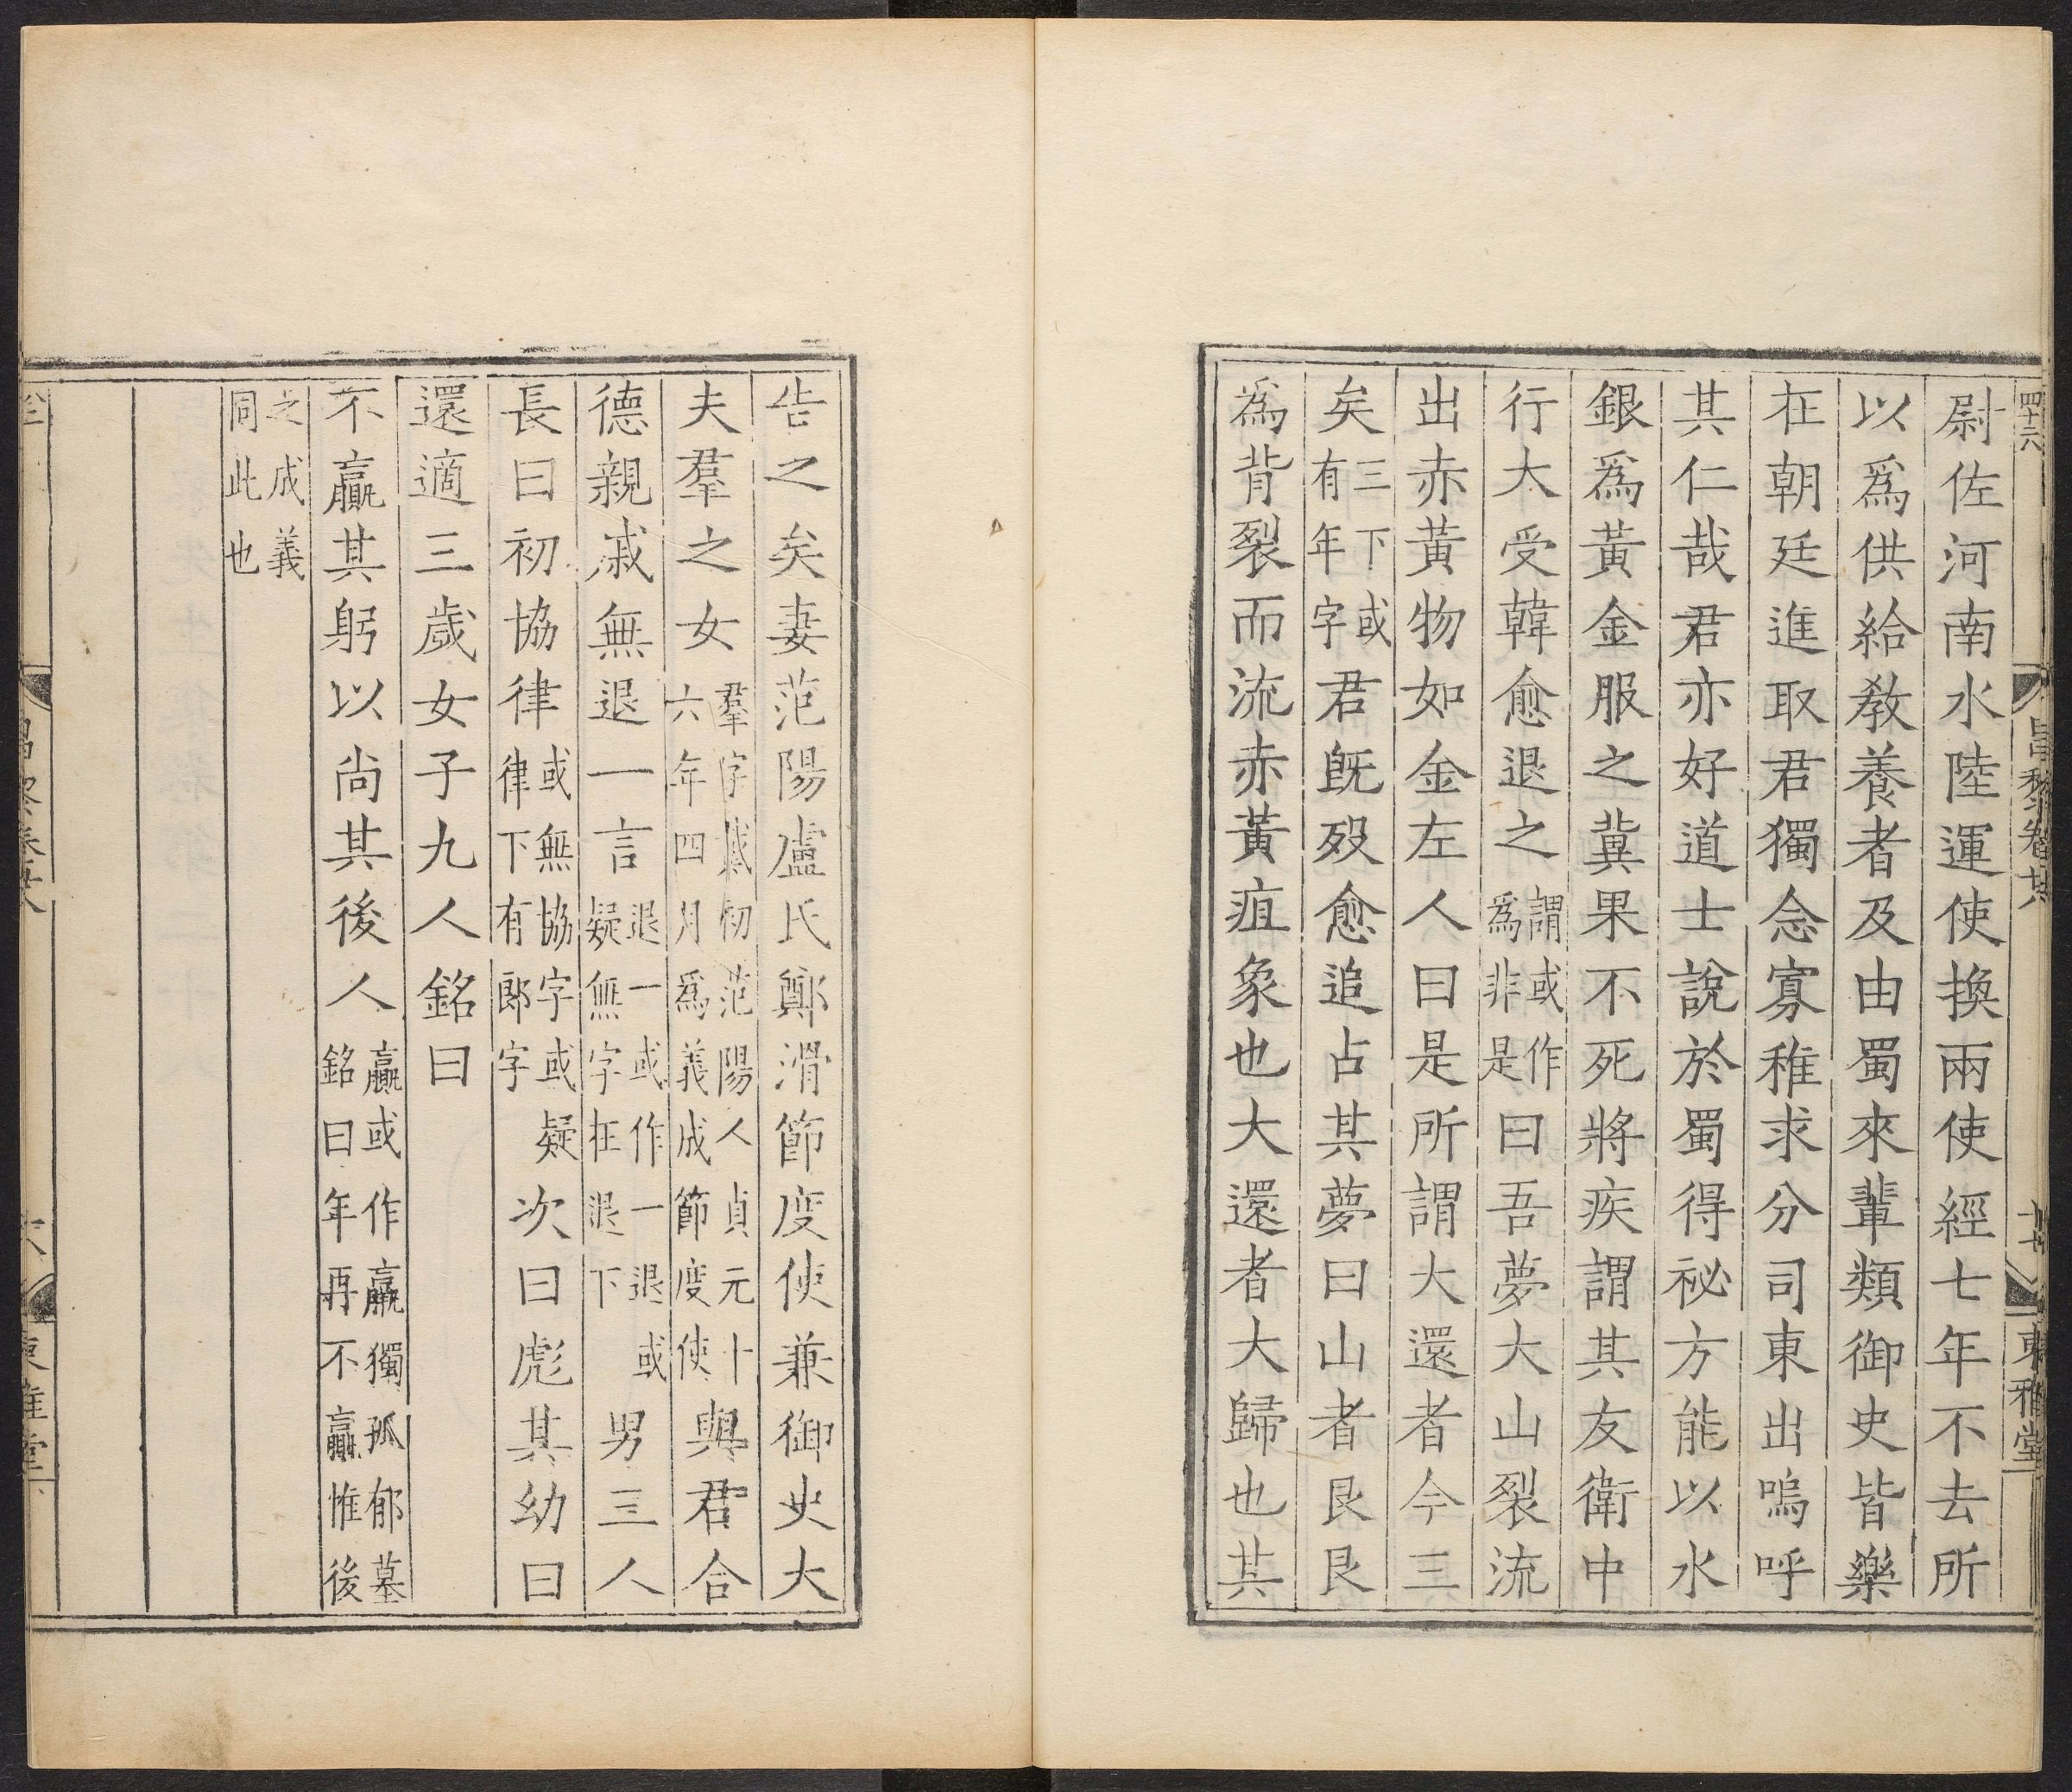 尉佐河南水陸運使換兩使經七年不去所
以爲供給教養者及由蜀來輩類御史皆樂
在朝廷進取君獨念寡稚求分司東出嗚呼
其仁哉君亦好道士說於蜀得祕方能以水
銀爲黃金服之冀果不死將疾謂其友衛中
行大受韓愈退之謂或作爲非是曰吾夢大山裂流
出赤黃物如金左人曰是所謂大還者今三
矣三下或有年字君旣歿愈追占其夢曰山者艮艮
爲背裂而流赤黃疽象也大還者大歸也其
告之矣妻范陽盧氏鄭滑節度使兼御史大
夫羣之女羣字載初范陽人貞元十六年四月爲義成節度使與君合
德親戚無退一言退一或作一退或疑無字在退下男三人
長曰初協律或無協字或疑律下有郎字次曰彪其幼曰
還適三歲女子九人銘曰
不贏其躬以尚其後人贏或作羸獨孤郁墓銘曰年再不贏惟後
之成義同此也
昌黎卷廿六
東雅堂